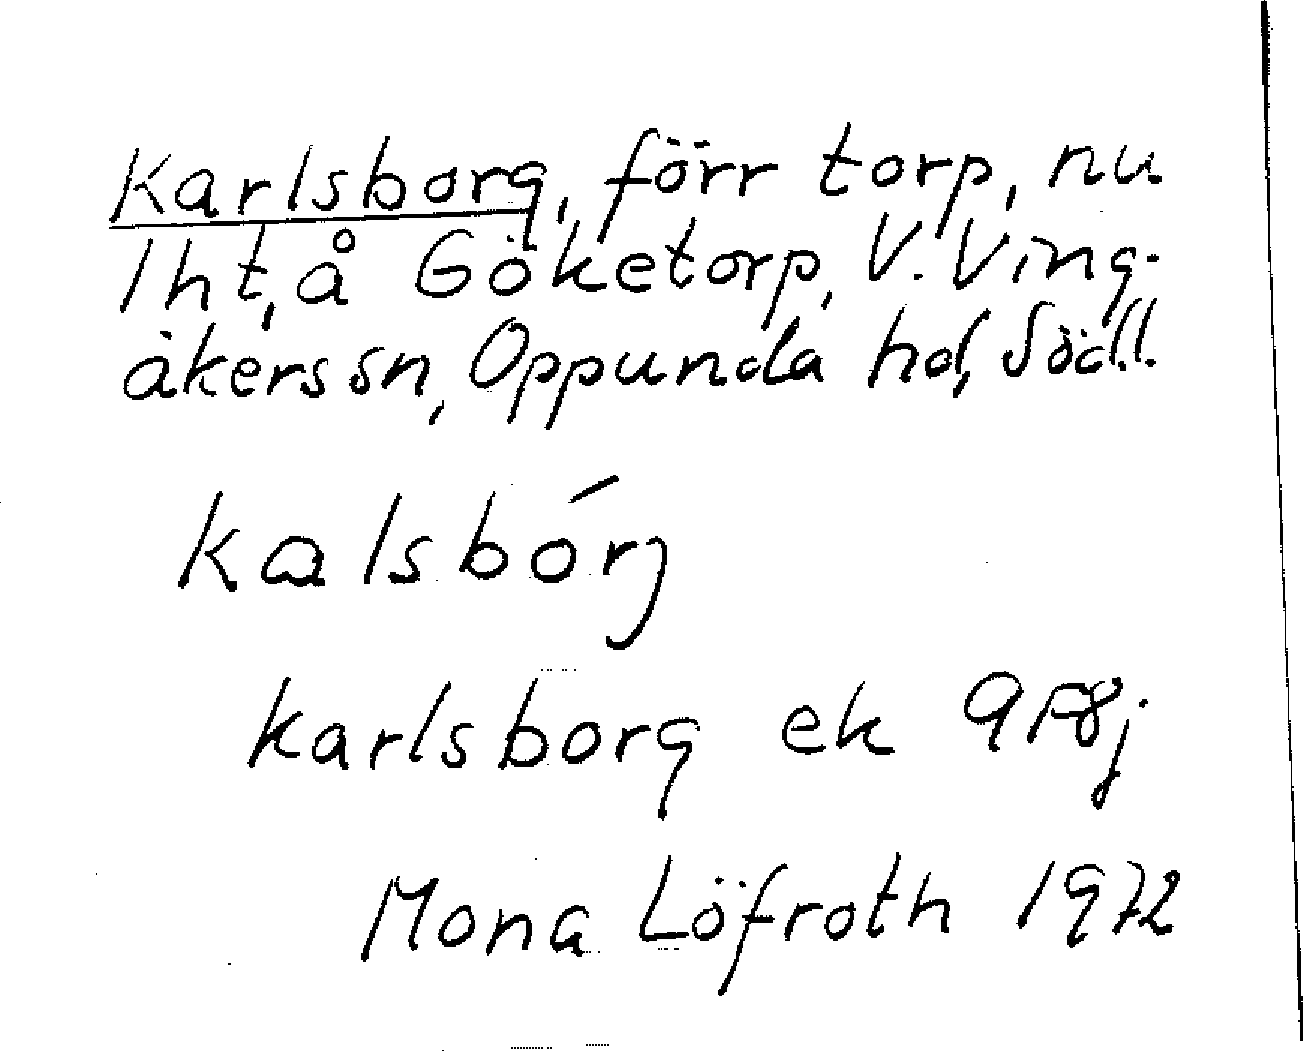 Karlsborg, förr torp, nu
lht, å Göketorp, V. Ving-
åkers sn, Oppunda hd, Södl.
kalsbórj
karlsborg ek 9F8j
Mona Löfroth 1972